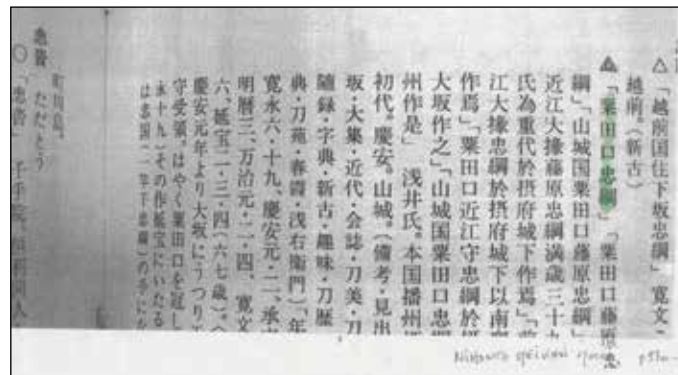 △「越前国住下坂忠綱」寛文
越前。(新古)
「粟田口忠綱」「粟田口藤原忠
綱」「山城国粟田口藤原忠綱」
近江大掾藤原忠綱満歳三十九
氏為重代於摂府城下作焉」
江大掾忠綱於摂府城下以南蛮
作焉」「粟田口近江守忠綱於
大坂作之」「山城国粟田口忠
州作是」 浅井氏。本国播州
初代。慶安。山城。(備考・見出
坂・大集・近代・会誌・刀美・刀
随録・字典・新古・趣味・刀歴
典・刀苑・春霞・浅右衛門)年
寛永六・十九、慶安元・二、承
明暦三、万治元・二・四、寛文
六、延宝二・三・四(六七歳)。
慶安元年より大坂にうつり
守受領。はやく粟田口を冠し
永十九)その作延宝にいたる
は忠国(一竿子忠綱)の手にな
町刈島。
忠沓 ただとう
○「忠沓」千手院。